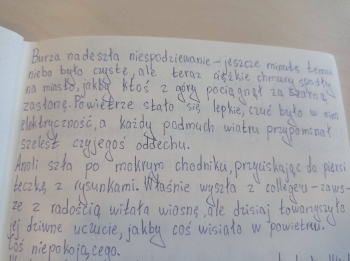 Burza nadeszła niespodziewanie – jeszcze minutę temu
niebo było czyste, ale teraz ciężkie chmury spadły
na miasto, jakby ktoś z góry pociągnął za szarą
zasłonę. Powietrze stało się lepkie, czuć było w nim
elektryczność, a każdy podmuch wiatru przypominał
szelest czyjegoś oddechu.
Anoli szła po mokrym chodniku, przyciskając do piersi
teczkę z rysunkami. Właśnie wyszła z collegeu – zaws-
ze z radością witała wiosnę, ale dzisiaj towarzyszyło
jej dziwne uczucie, jakby coś wisiało w powietrzu.
Coś niepokojącego.